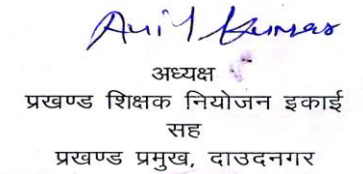 Anil Kumar
अध्यक्ष
प्रखण्ड शिक्षक नियोजन इकाई
सह
प्रखण्ड प्रमुख, दाउदनगर